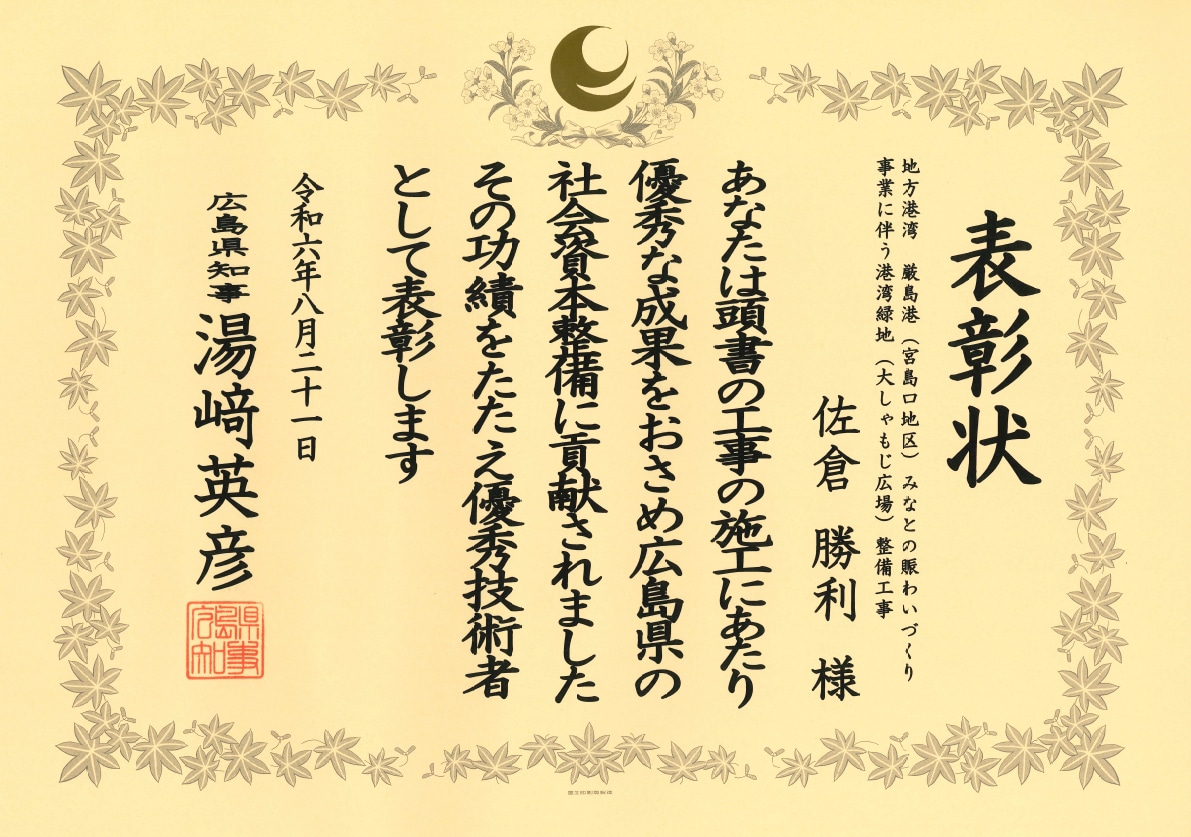 表彰状
地方港湾　厳島港（宮島口地区）みなとの賑わいづくり
事業に伴う港湾緑地（大しゃもじ広場）整備工事
佐倉　勝利　様
あなたは頭書の工事の施工にあたり
優秀な成果をおさめ広島県の
社会資本整備に貢献されました
その功績をたたえ優秀技術者
として表彰します
令和六年八月二十一日
広島県知事　湯﨑英彦
県事島知広